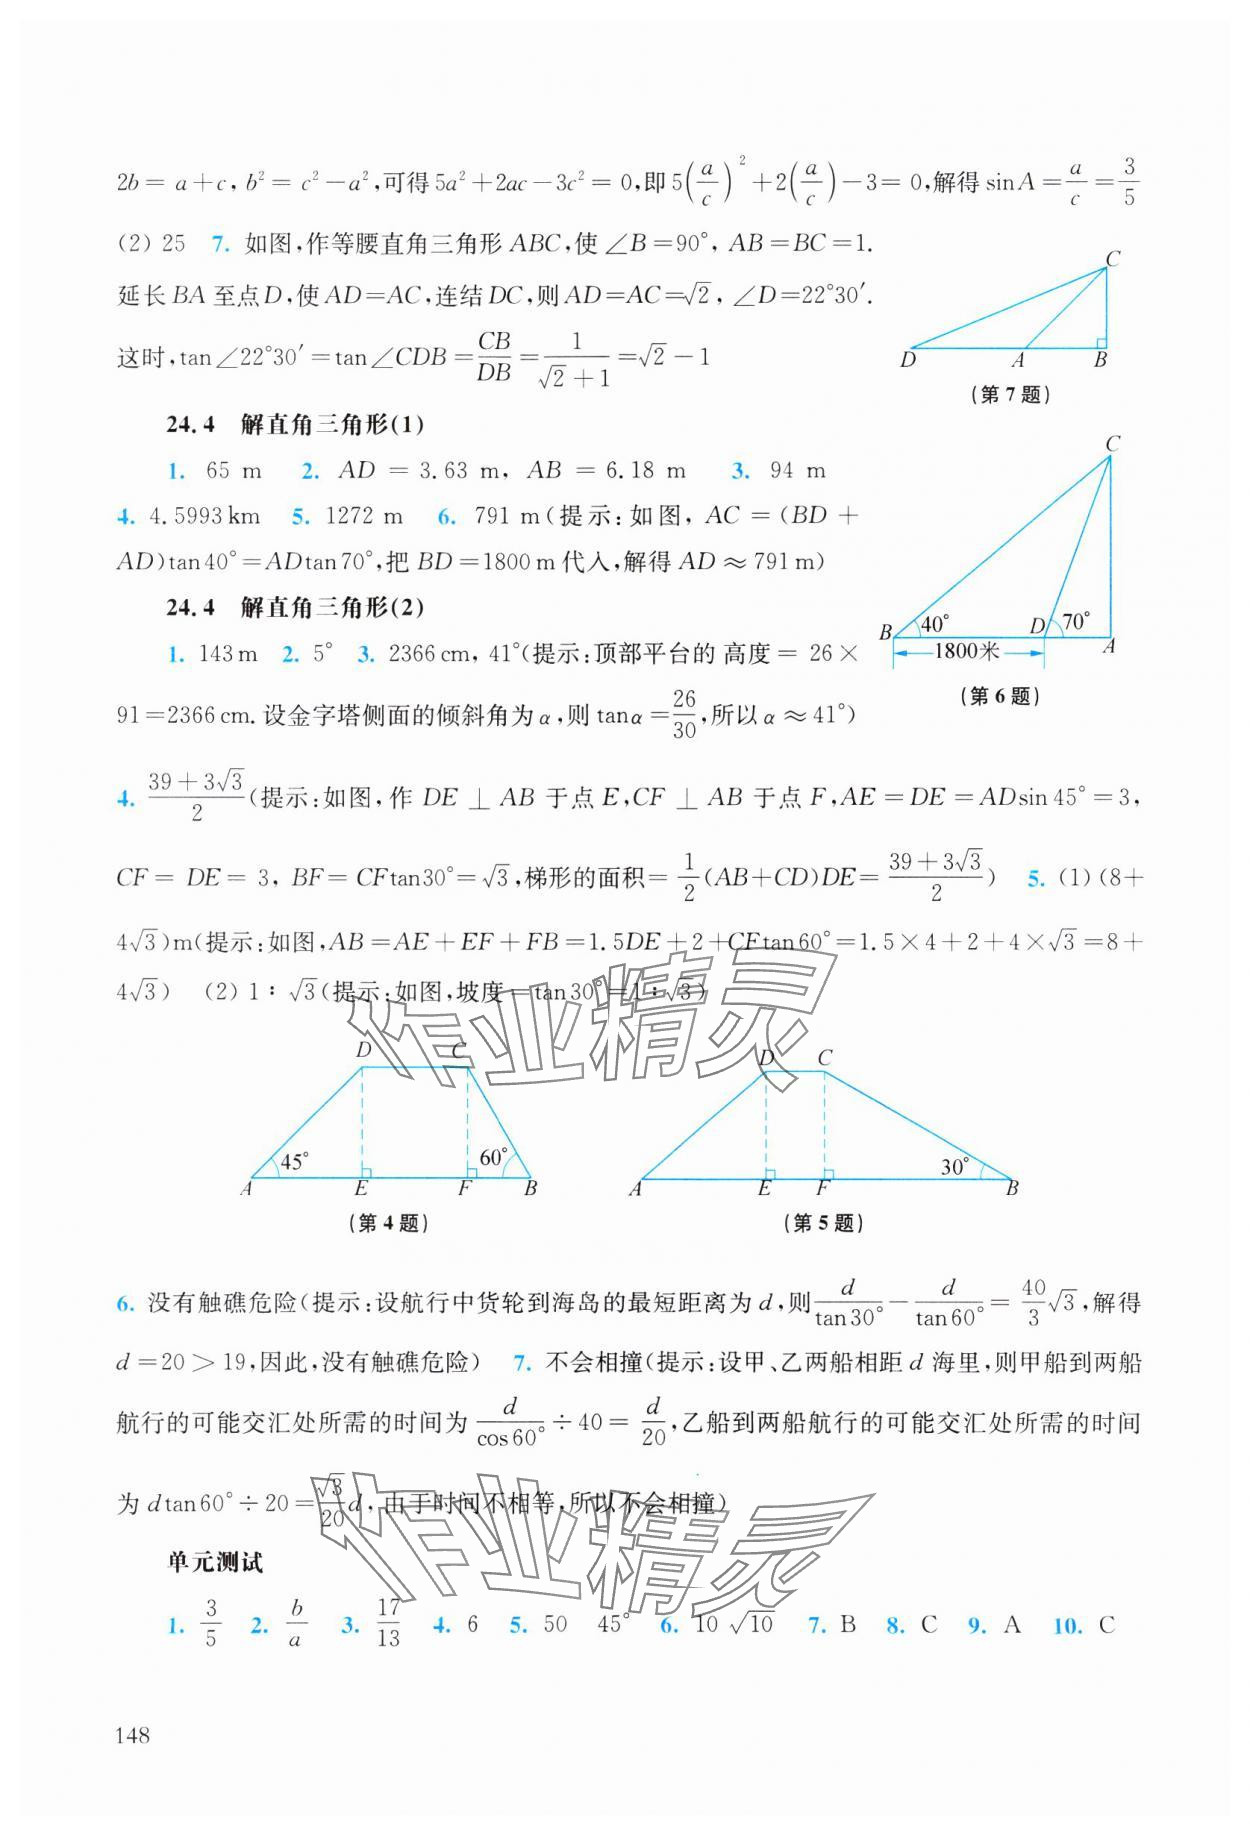 2b= a+c, b²= c²-a²,可得5a²+2ac-3c²=0,即5(a/c)²+2(a/c)-3=0,解得sinA=a/c=3/5
(2) 25 7. 如图,作等腰直角三角形ABC,使∠B=90°, AB=BC=1.
延长BA至点D,使AD=AC,连结DC,则AD=AC=√2, ∠D=22°30′.
这时,tan∠22°30′=tan∠CDB=CB/DB=1/(√2+1)=√2-1
C
D A B
(第7题)
24.4 解直角三角形(1)
1. 65 m 2. AD = 3.63 m, AB = 6.18 m 3. 94 m
4. 4.5993km 5. 1272 m 6. 791 m(提示:如图, AC=(BD+
AD)tan40°=ADtan70°,把BD=1800m代入,解得AD≈791m)
C
B 40° D 70° A
1800米
(第6题)
24.4 解直角三角形(2)
1. 143m 2. 5° 3. 2366cm, 41°(提示:顶部平台的高度= 26×
91=2366cm.设金字塔侧面的倾斜角为α,则tanα=26/30,所以α≈41°)
4. (39+3√3)/2(提示:如图,作DE⊥AB于点E,CF⊥AB于点F,AE=DE=ADsin45°=3,
CF= DE= 3, BF= CFtan30°=√3,梯形的面积=1/2(AB+CD)DE=(39+3√3)/2) 5. (1)(8+
4√3)m(提示:如图,AB=AE+EF+FB=1.5DE+2+CFtan60°=1.5×4+2+4×√3=8+
4√3) (2) 1∶√3(提示:如图,坡度=tan30°=1∶√3)
作业精灵
D C
45° 60°
A E F B
(第4题)
D C
30°
A E F B
(第5题)
6. 没有触礁危险(提示:设航行中货轮到海岛的最短距离为d,则d/tan30°-d/tan60°=40/3√3,解得
d=20>19,因此,没有触礁危险) 7. 不会相撞(提示:设甲、乙两船相距d海里,则甲船到两船
航行的可能交汇处所需的时间为d/cos60°÷40=d/20,乙船到两船航行的可能交汇处所需的时间
为dtan60°÷20=√3/20d,由于时间不相等,所以不会相撞)
作业精灵
单元测试
1. 3/5 2. b/a 3. 17/13 4. 6 5. 50 45° 6. 10 √10 7. B 8. C 9. A 10. C
148